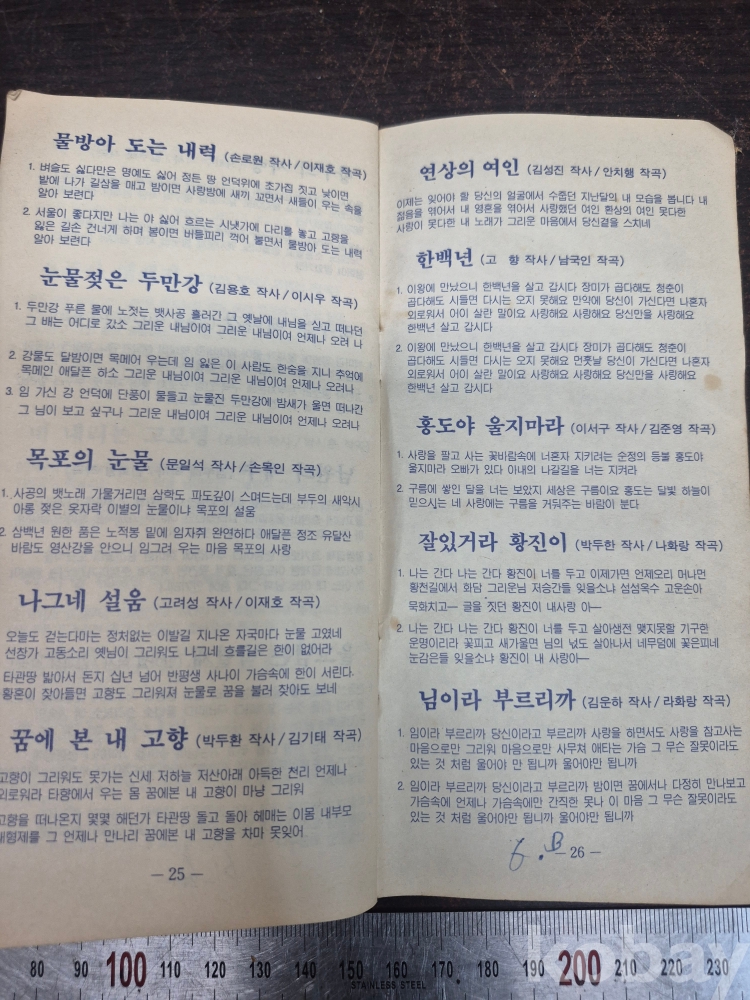 물방아 도는 내력 (손로원 작사/이재호 작곡)
1. 벼슬도 싫다만은 명예도 싫어 정든 땅 언덕위에 초가집 짓고 낮이면
밭에 나가 길삼을 매고 밤이면 사랑방에 새끼 꼬면서 새들이 우는 속을
알아 보련다
2. 서울이 좋다지만 나는 야 싫어 흐르는 시냇가에 다리를 놓고 고향을
잃은 길손 건너게 하며 봄이면 버들피리 꺽어 불면서 물방아 도는 내력
알아 보련다
눈물젖은 두만강 (김용호 작사/이시우 작곡)
1. 두만강 푸른 물에 노젓는 뱃사공 흘러간 그 옛날에 내님을 싣고 떠나던
그 배는 어디로 갔소 그리운 내님이여 그리운 내님이여 언제나 오려 나
2. 강물도 달밤이면 목메어 우는데 임 잃은 이 사람도 한숨을 지니 추억에
목메인 애달픈 하소 그리운 내님이여 그리운 내님이여 언제나 오려나
3. 임 가신 강 언덕에 단풍이 물들고 눈물진 두만강에 밤새가 울면 떠나간
그 님이 보고 싶구나 그리운 내님이여 그리운 내님이여 언제나 오려나
목포의 눈물 (문일석 작사/손목인 작곡)
1. 사공의 뱃노래 가물거리면 삼학도 파도깊이 스며드는데 부두의 새악시
아롱 젖은 옷자락 이별의 눈물이냐 목포의 설움
2. 삼백년 원한 품은 노적봉 밑에 임자취 완연하다 애달픈 정조 유달산
바람도 영산강을 안으니 임그려 우는 마음 목포의 사랑
나그네 설움 (고려성 작사/이재호 작곡)
오늘도 걷는다마는 정처없는 이발길 지나온 자국마다 눈물 고였네
선창가 고동소리 옛님이 그리워도 나그네 흐를길은 한이 없어라
타관땅 밟아서 돈지 십년 넘어 반평생 사나이 가슴속에 한이 서린다.
황혼이 찾아들면 고향도 그리워져 눈물로 꿈을 불러 찾아도 보네
꿈에 본 내 고향 (박두환 작사/김기태 작곡)
고향이 그리워도 못가는 신세 저하늘 저산아래 아득한 천리 언제나
외로워라 타향에서 우는 몸 꿈에본 내 고향이 마냥 그리워
고향을 떠나온지 몇몇 해던가 타관땅 돌고 돌아 헤매는 이몸 내부모
내형제를 그 언제나 만나리 꿈에본 내 고향을 차마 못잊어
— 25 —
연상의 여인 (김성진 작사/안치행 작곡)
이제는 잊어야 할 당신의 얼굴에서 수줍던 지난달의 내 모습을 봅니다 내
젊음을 엮어서 내 영혼을 엮어서 사랑했던 여인 환상의 여인 못다한
사랑이 못다한 내 노래가 그리운 마음에서 당신곁을 스치네
한백년 (고 향 작사/남국인 작곡)
1. 이왕에 만났으니 한백년을 살고 갑시다 장미가 곱다해도 청춘이
곱다해도 시들면 다시는 오지 못해요 만약에 당신이 가신다면 나혼자
외로워서 어이 살란 말이요 사랑해요 사랑해요 당신만을 사랑해요
한백년 살고 갑시다
2. 이왕에 만났으니 한백년을 살고 갑시다 장미가 곱다해도 청춘이
곱다해도 시들면 다시는 오지 못해요 먼훗날 당신이 가신다면 나혼자
외로워서 어이 살란 말이요 사랑해요 사랑해요 당신만을 사랑해요
한백년 살고 갑시다
홍도야 울지마라 (이서구 작사/김준영 작곡)
1. 사랑을 팔고 사는 꽃바람속에 너혼자 지키려는 순정의 등불 홍도야
울지마라 오빠가 있다 아내의 나갈길을 너는 지켜라
2. 구름에 쌓인 달을 너는 보았지 세상은 구름이요 홍도는 달빛 하늘이
믿으시는 네 사랑에는 구름을 거둬주는 바람이 분다
잘있거라 황진이 (박두한 작사/나화랑 작곡)
1. 나는 간다 나는 간다 황진이 너를 두고 이제가면 언제오리 머나먼
황천길에서 화담 그리운님 저승간들 잊을소냐 섬섬옥수 고운손아
묵화치고— 글을 짓던 황진이 내사랑 아—
2. 나는 간다 나는 간다 황진이 너를 두고 살아생전 맺지못할 기구한
운명이리라 꽃피고 새가울면 님의 넋도 살아나서 네무덤에 꽃은피네
눈감은들 잊을소냐 황진이 내 사랑아—
님이라 부르리까 (김운하 작사/라화랑 작곡)
1. 임이라 부르리까 당신이라고 부르리까 사랑을 하면서도 사랑을 참고사는
마음으로만 그리워 마음으로만 사무쳐 애타는 가슴 그 무슨 잘못이라도
있는 것 처럼 울어야 만 됩니까 울어야만 됩니까
2. 임이라 부르리까 당신이라고 부르리까 밤이면 꿈에서나 다정히 만나보고
가슴속에 언제나 가슴속에만 간직한 못나 이 마음 그 무슨 잘못이라도
있는 것 처럼 울어야만 됩니까 울어야만 됩니까
6. B
— 26 —
kobay
80 90 100 110 120 130 140 150 160 170 180 190 200 210 220 230
STAINLESS STEEL